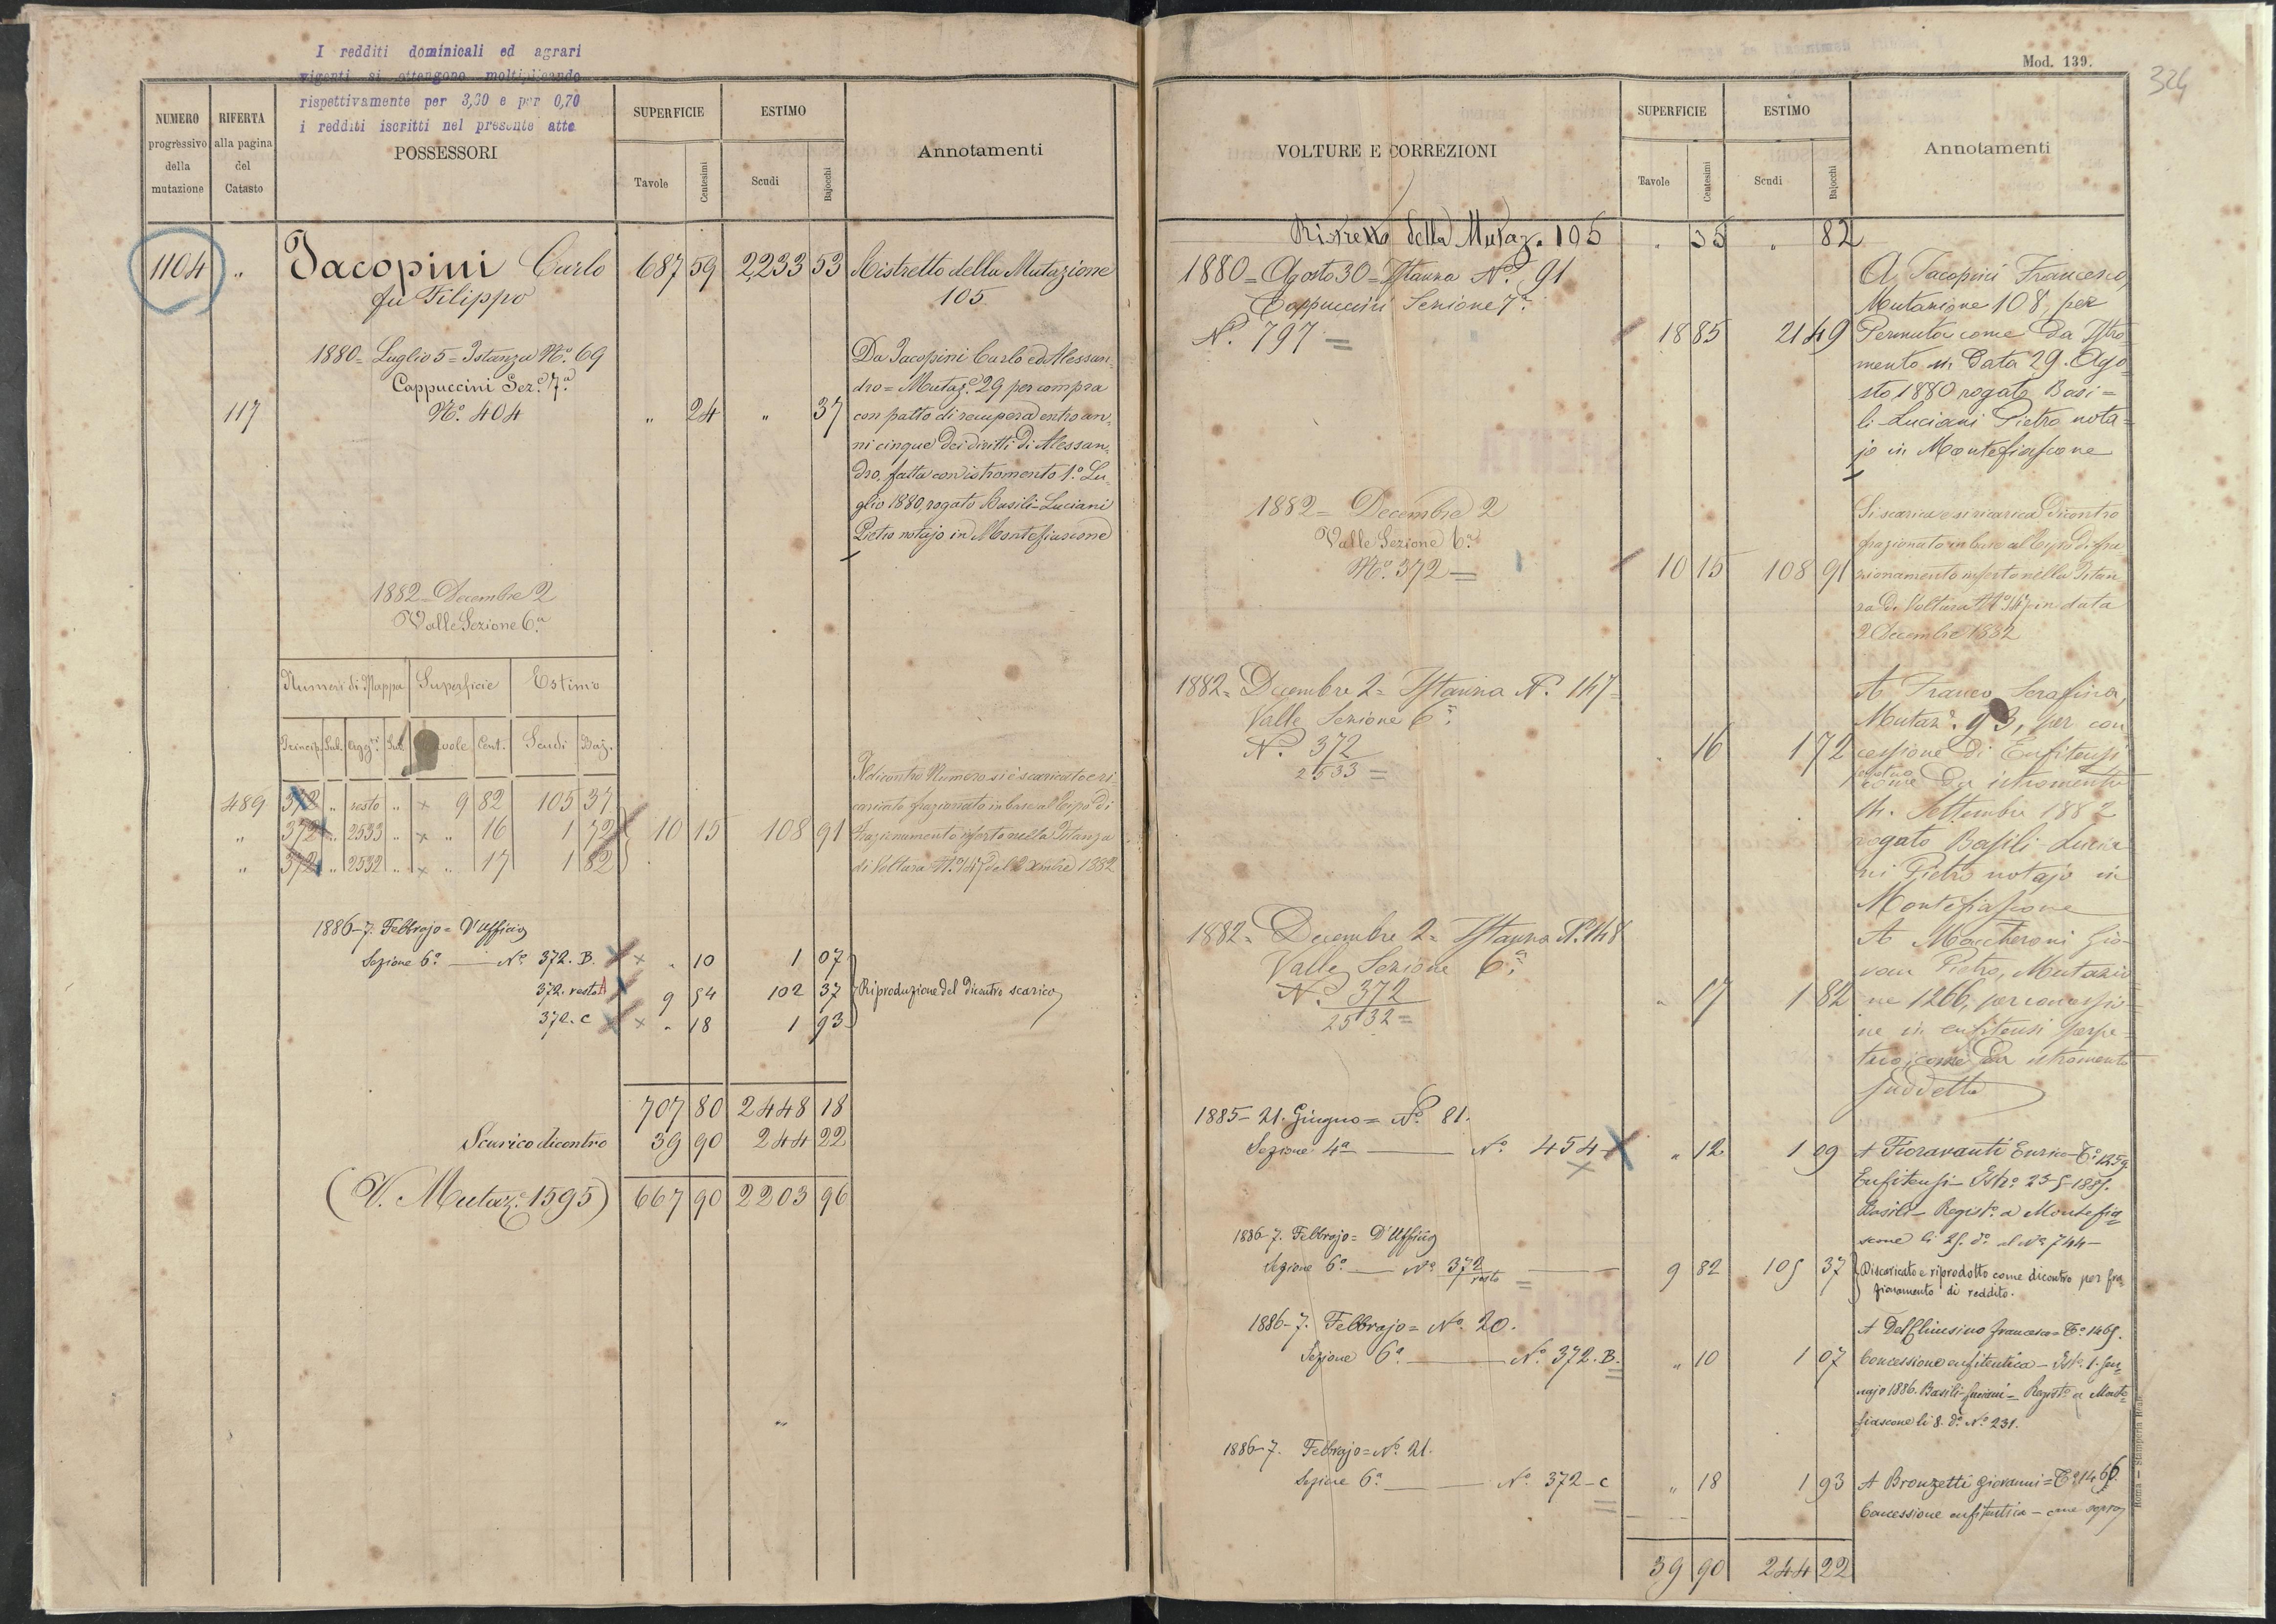 I redditi dominicali ed agrari
vigenti si ottengono moltiplicando
rispettivamente per 3,60 e per 0,70
i redditi iscritti nel presente atto
NUMERO progressivo della mutazione
RIFERTA alla pagina del Catasto
POSSESSORI
SUPERFICIE
Tavole Centesimi
ESTIMO
Scudi Bajocchi
Annotamenti
1104 " Jacopini Carlo 687 59 2233 53 Ristretto della Mutazione
fu Filippo 105
1880 = Luglio 5 = Istanza N.º 69 Da Jacopini Carlo ed Alessan-
Cappuccini Sez.e 7.a dro = Mutaz.e 29 per compra
117 N.º 404 " 24 " 37 con patto di recupera entro an-
ni cinque dei diritti di Alessan-
dro, fatta con istromento 1.º Lu-
glio 1880, rogato Basili-Luciani
Pietro notajo in Montefiascone
1882 = Decembre 2
Valle Sezione 6.a
Numeri di Mappa Superficie Estimo
Princip. Sub. Agg.ti Sub. Tavole Cent. Scudi Baj.
Il dicontro Numero si è scaricato e ri
489 372 " resto " × 9 82 105 37 caricato frazionato in base al Tipo di
" 372 " 2533 " × " 16 1 72 10 15 108 91 Frazionamento inserto nella Istanza
" 372 " 2532 " × " 17 1 82 di Voltura N.º 147 del 2 Xmbre 1882
1886 - 7. Febbrajo = D'Ufficio
Sezione 6.a — N.º 372. B. × " 10 1 07
372. resto A 9 54 102 37 Riproduzione del dicontro scarico
372. C × " 18 1 93
707 80 2448 18
Scarico dicontro 39 90 244 22
(V. Mutaz.e 1595) 667 90 2203 96
Mod. 139.
324
VOLTURE E CORREZIONI
SUPERFICIE
Tavole Centesimi
ESTIMO
Scudi Bajocchi
Annotamenti
Ristretto della Mutaz. 105 " 35 " 82
1880 = Agosto 30 = Istanza N.º 91 A Jacopini Francesco,
Cappuccini Sezione 7.a Mutazione 108, per
N.º 797 = 18 85 21 49 Permuta come da Istro-
mento in data 29. Ago-
sto 1880 rogato Basi=
li-Luciani Pietro nota=
jo in Montefiascone
1882 = Decembre 2 Si scarica e si ricarica dicontro
Valle Sezione 6.a frazionato in base al Tipo di fra-
N.º 372 = 10 15 108 91 zionamento inserto nella Istan
za di Voltura N.º 147 in data
2 Decembre 1882
1882 = Decembre 2 = Istanza N.º 147 = A Franco Serafina,
Valle Sezione 6.a Mutaz.e 93, per con
N.º 372 / 2533 = " 16 1 72 cessione di Enfiteusi
come da istromento
14. Settembre 1882
rogato Basili Lucia
ni Pietro notajo in
Montefiascone
1882 = Decembre 2 = Istanza N.º 148 A Marcheroni Gio-
Valle Sezione 6.a van Pietro, Mutazio
N.º 372 / 2532 = " 17 1 82 ne 1266, per concessio-
ne in enfiteusi perpe-
tua, come da istromento
suddetto
1885 - 21. Giugno = N.º 81.
Sezione 4.a — N.º 454 " 12 1 09 A Fioravanti Enrico = T.º 1259
Enfiteusi - Istr.º 23-5-1885.
Basili - Regist.º a Montefia
scone li 25. d.º al N.º 744 -
1886 - 7. Febbrajo = D'Ufficio
Sezione 6.a — N.º 372 / resto = 9 82 105 37 Discaricato e riprodotto come dicontro per fra
zionamento di reddito.
1886 - 7. Febbrajo = N.º 20. A Del Chiusino Francesco = T.º 1465.
Sezione 6.a — N.º 372. B. " 10 1 07 Concessione enfiteutica - Ist.º 1. Gen
najo 1886. Basili-Luciani - Regist.º a Monte
fiascone li 8. d.º N.º 231.
1886 - 7. Febbrajo = N.º 21.
Sezione 6.a — N.º 372 - C " 18 1 93 A Bronzetti Giovanni = T.º 1466.
Concessione enfiteutica - come sopra
39 90 244 22
Roma — Stamperia Reale